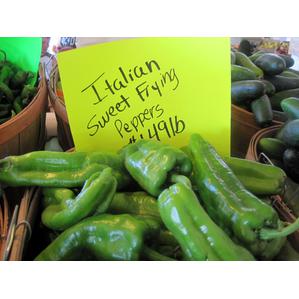 Italian
Sweet Frying
Peppers
1.49 lb